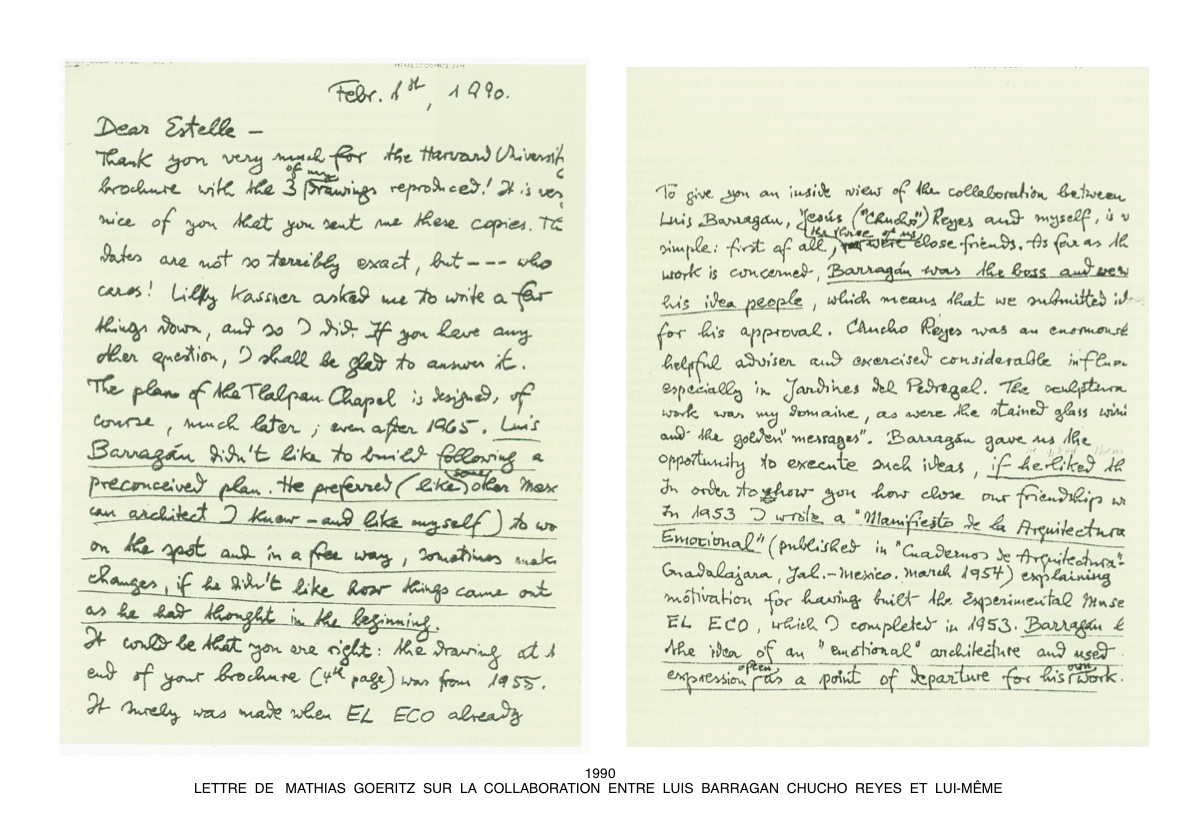 Febr. 1st, 1990.
Dear Estelle –
Thank you very much for the Harvard Universit
brochure with the 3 of my drawings reproduced! It is ver
nice of you that you sent me these copies. Th
dates are not so terribly exact, but --- who
cares! Lilly Kassner asked me to write a few
things down, and so I did. If you have any
other question, I shall be glad to answer it.
The plans of the Tlalpan Chapel is designed, of
course, much later; even after 1965. Luis
Barragán didn't like to build following a
preconceived plan. He preferred (like some other Mexi
can architect I knew – and like myself) to wo
on the spot and in a free way, sometimes make
changes, if he didn't like how things came out
as he had thought in the beginning.
It could be that you are right: the drawing at
end of your brochure (4th page) was from 1955.
It surely was made when EL ECO already
To give you an inside view of the collaboration between
Luis Barragán, Jesús ("Chucho") Reyes and myself, is v
simple: first of all, the three of us were close friends. As far as th
work is concerned, Barragán was the boss and wer
his idea people, which means that we submitted ideas
for his approval. Chucho Reyes was an enormous
helpful adviser and exercised considerable influen
especially in Jardines del Pedregal. The sculptura
work was my domaine, as were the stained glass win
and the golden "messages". Barragán gave us the
opportunity to execute such ideas, if he liked th
In order to show you how close our friendship w
In 1953 I wrote a "Manifiesto de la Arquitectura
Emocional" (published in "Cuadernos de Arquitectura"
Guadalajara, Jal.-Mexico. March 1954) explaining
motivation for having built the Experimental Muse
EL ECO, which I completed in 1953. Barragán l
the idea of an "emotional" architecture and used
expression often as a point of departure for his own work.
1990
LETTRE DE MATHIAS GOERITZ SUR LA COLLABORATION ENTRE LUIS BARRAGAN CHUCHO REYES ET LUI-MÊME